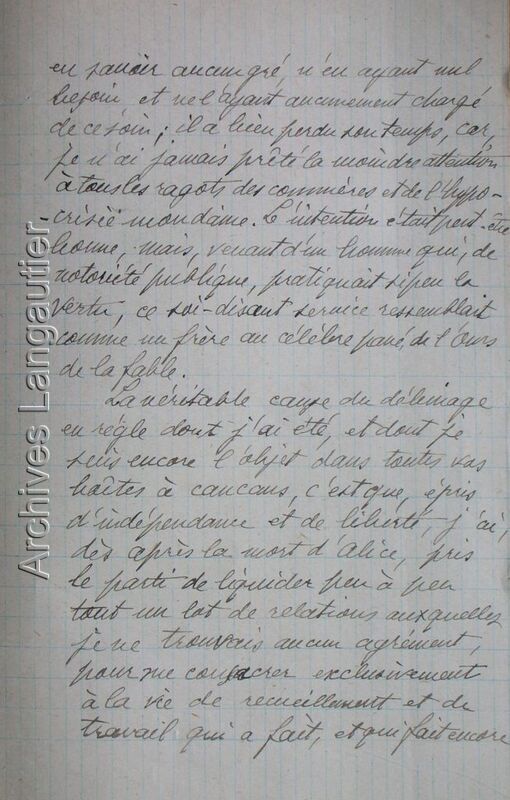 en savoir aucun gré, n'en ayant nul
besoin, et ne l'ayant aucunement chargé
de ce soin ; il a bien perdu son temps, car,
je n'ai jamais prêté la moindre attention
à tous les ragots des commères et de l'hypo-
-crisie mondaine. L'intention était peut-être
bonne, mais, venant d'un homme qui, de
notoriété publique, pratiquait si peu la
vertu, ce soi-disant service ressemblait
comme un frère au célèbre pavé de l'Ours
de la fable.
La véritable cause du débinage
en règle dont j'ai été, et dont je
suis encore l'objet dans toutes vos
boîtes à cancans, c'est que, épris
d'indépendance et de liberté, j'ai,
dès après la mort d'Alice, pris
le parti de liquider peu à peu
tout un lot de relations auxquelles
je ne trouvais aucun agrément,
pour me consacrer exclusivement
à la vie de recueillement et de
travail qui a fait, et qui fait encore
Archives Langautier